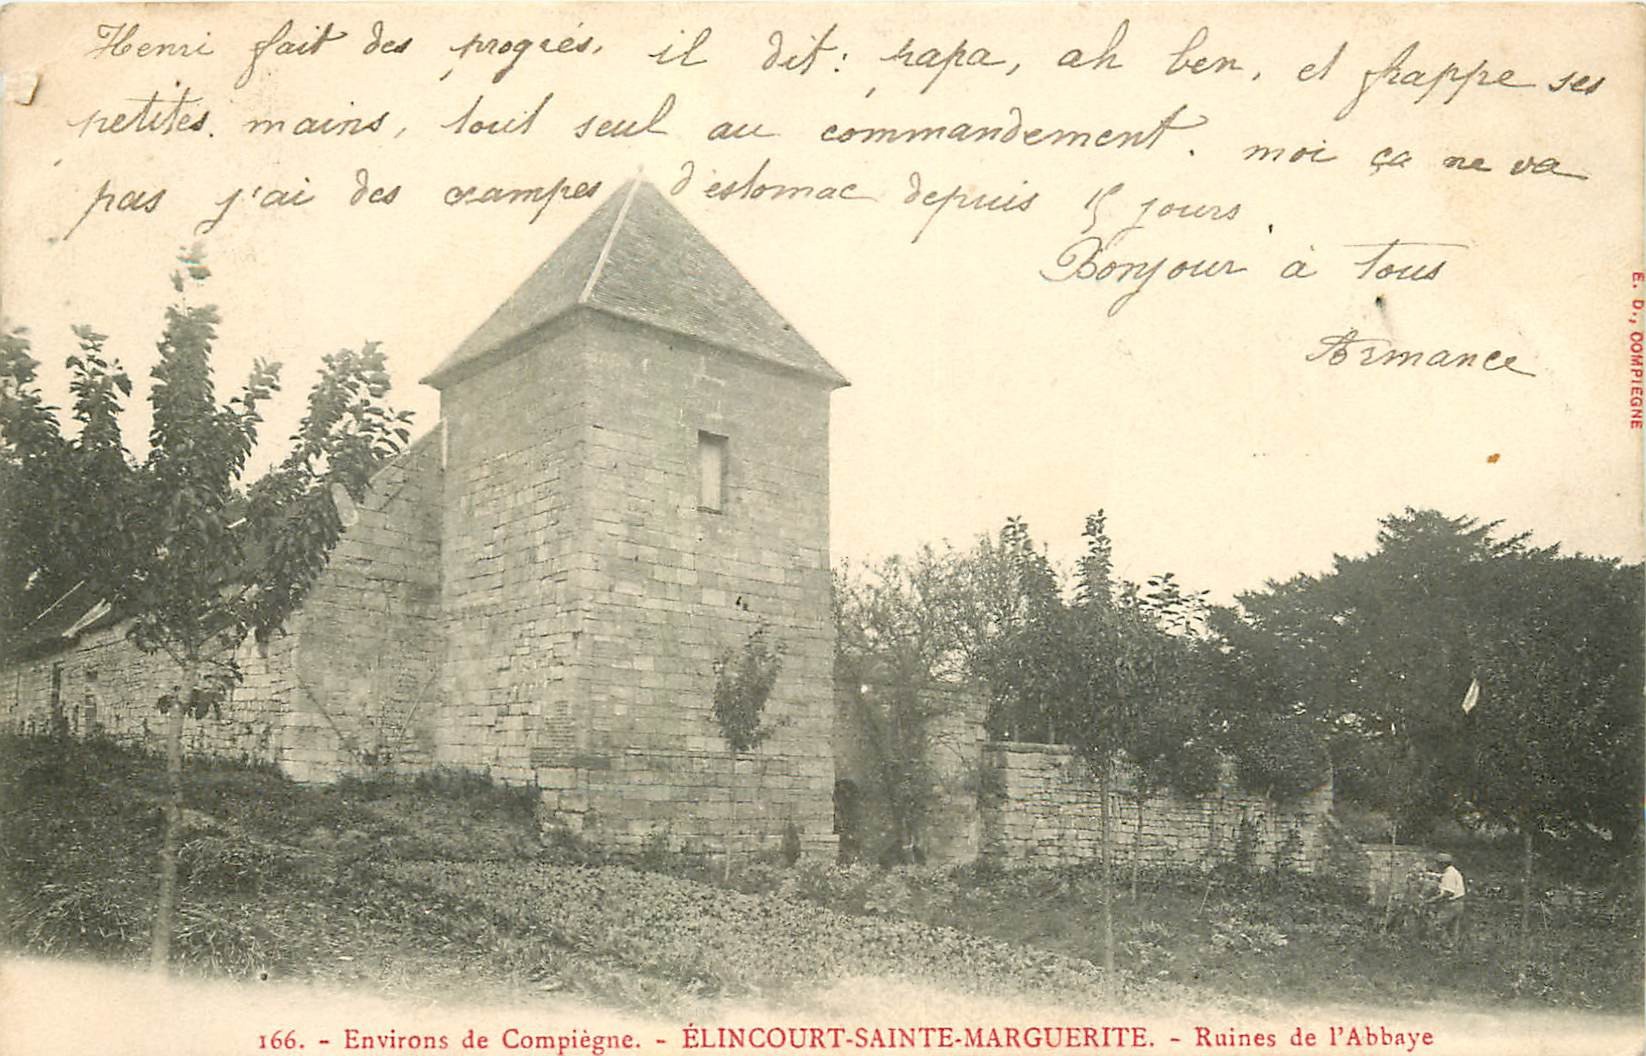 Henri fait des progrés, il dit: papa, ah ben, et frappe ses
petites mains, tout seul au commandement. moi ça ne va
pas j'ai des crampes d'estomac depuis 15 jours.
Bonjour à tous
Armance
E. D., COMPIEGNE
166. - Environs de Compiègne. - ÉLINCOURT-SAINTE-MARGUERITE. - Ruines de l'Abbaye